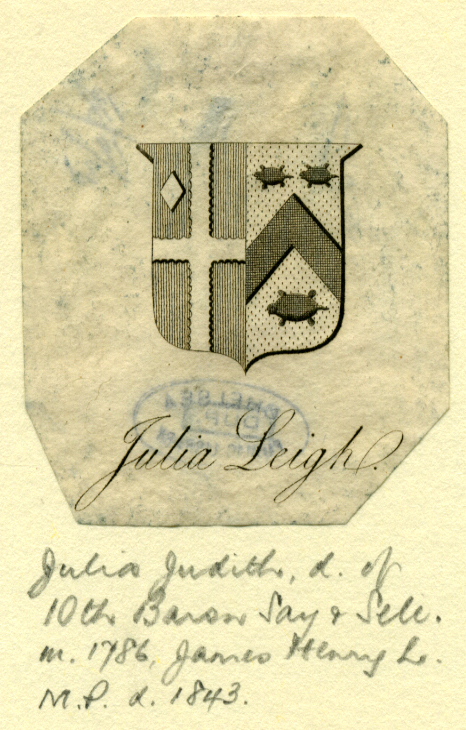 CHELSEA
PUBLIC
Julia Leigh.
Julia Judith, d. of
10th Baron Say & Sele.
m. 1786, James Henry L.
M.P. d. 1843.